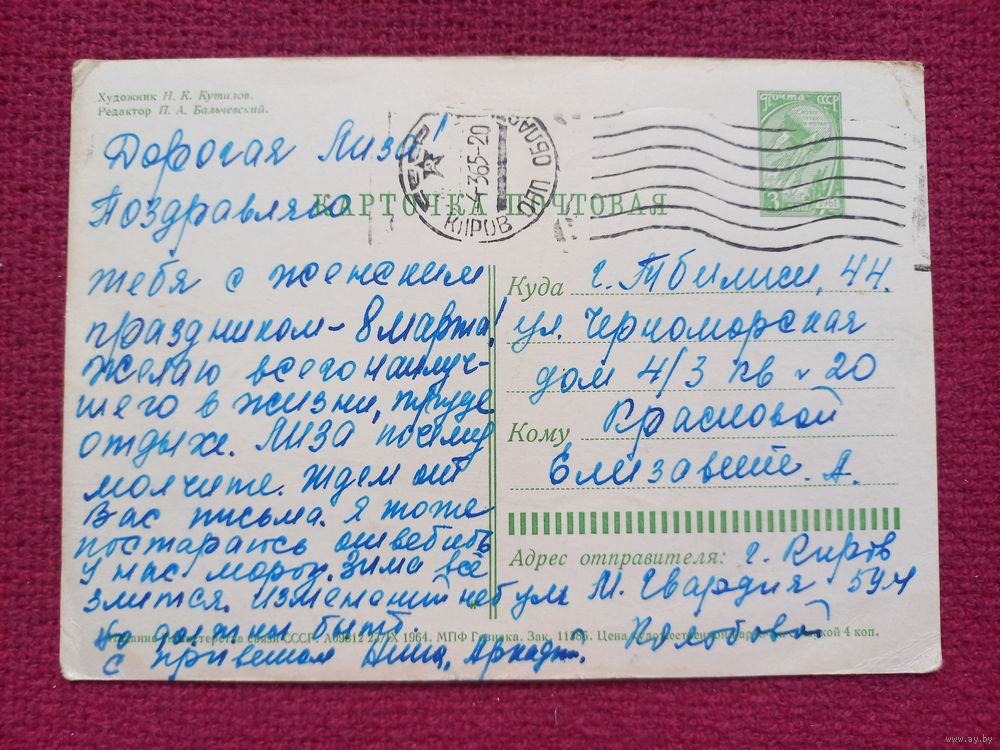 Художник Н. К. Кутилов.
Редактор П. А. Бальчевский.
ПОЧТА СССР
3
1961
4-365-20
КИРОВ ОБЛАС
КАРТОЧКА ПОЧТОВАЯ
Дорогая Лиза!
Поздравляю
тебя с женским
праздником - 8 марта!
желаю всего наилуч-
шего в жизни, труде
отдыхе. Лиза почему
молчите. Ждем от
Вас письма. Я тоже
постараюсь ответить
у нас мороз. Зима всё
злится. Изменений
должны быть.
с приветом Аркадий.
Куда г. Тбилиси, 44.
ул. Черноморская
дом 4/3 кв 20
Кому Красновой
Елизавете. А.
Адрес отправителя: г. Киров
ул М. Гвардия
Издание Министерства связи СССР. 1964. МПФ Гознака. Зак. Цена 4 коп.
www.ay.by